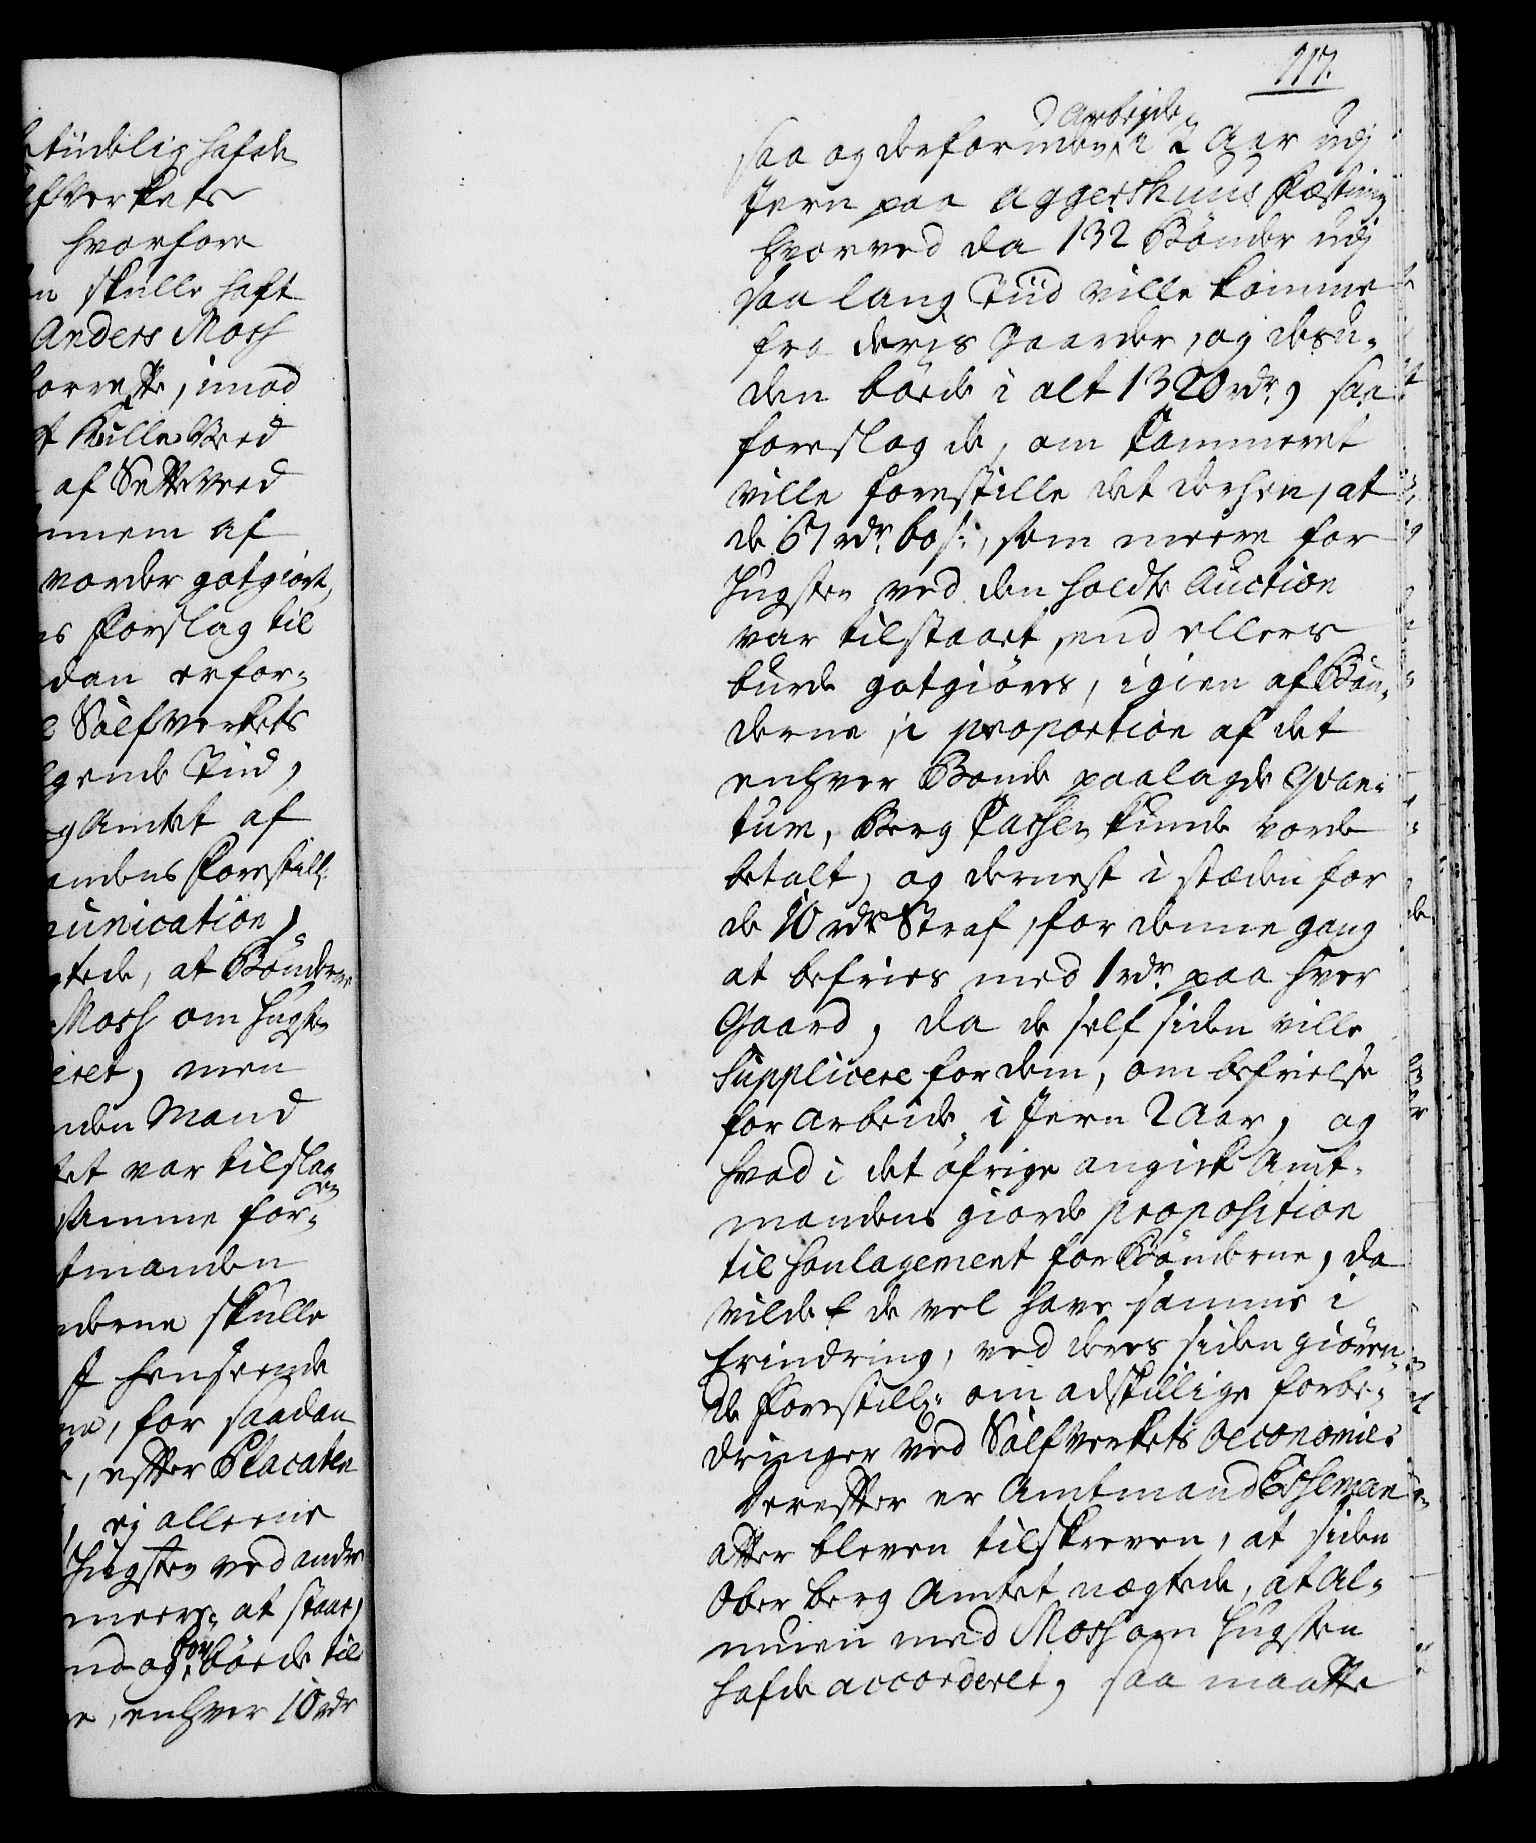 tüdelig hafde
lfverkets
hvorfore
n skulle haft
Anders Mosh
orrette, imod
t Kulleveed
af Setteveed
nnem af
vorder gotgiort,
s Forslag til
dan erfor-
e Sølfverkets
gende Tiid,
g Amtet af
andens Forestill:
unication,
gtede, at Bönderne
Mosh om Hugste
eret, men
nden Mand
tet var tilslagen
samme for-
tmanden
nderne skulle
J henseende
ne, for saadan
, efter Placaten
, ej alleene
Hugsten ved andre
meere at staae,
nd og bör böde til
e, enhver 10 rdr
117.
saa og derforuden Arbejde i 2 Aar udj
Jern paa Aggershuus Fæstning
hvorved da 132 Bönder udj
saa lang Tiid ville komme
fra deris Gaarder, og desu-
den böede i alt 1320 rdr, saa
foreslog de, om Cammeret
ville forestille det derhen, at
de 67 rdr 60 s:, som meere for
Hugsten ved den holdte Auction
var tilstaaet, end ellers
burde gotgiöres, igien af Bön-
derne i proportion af det
enhver Bonde paalagde Qvan-
tum, Berg Cassen kunde vorde
betalt, og dernest i stæden for
de 10 rdr Straf, for denne gang
at befries med 1 rdr paa hver
Gaard, da de self siden ville
Supplicere for dem, om befrielse
for Arbeide i Jern 2 Aar, og
hvad i det öfrige angick Amt-
mandens giorde proposition
til Soulagement for Bönderne, da
vilde de vel have samme i
Erindring, ved deres siden giören-
de Forestill: om adskillige forbe-
dringer ved Sölfverkets Oeconomie.
Derefter er Amtmand Eshleman
atter bleven tilskreven, at siden
Ober berg Amtet nægtede, at Al-
muen med Mosh om Hugsten
hafde accorderet, saa maatte